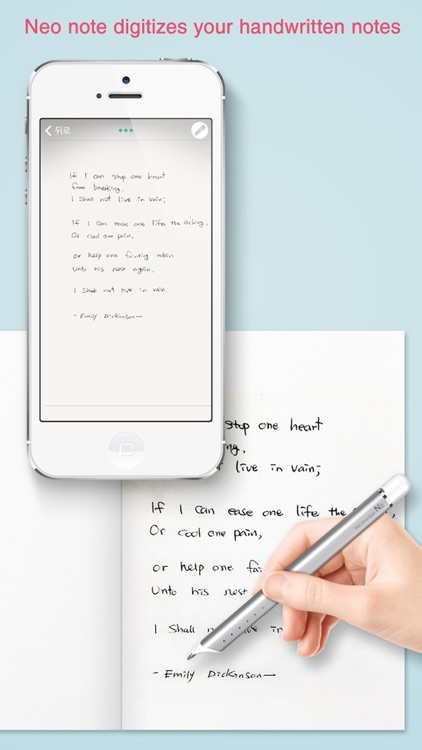 Neo note digitizes your handwritten notes
뒤로
If I can stop one heart
from breaking,
I shall not live in vain;
If I can ease one life the aching,
Or cool one pain,
or help one fainting robin
Unto his nest again,
I Shall not live in vain
- Emily Dickinson—
stop one heart
ng,
live in vain;
If I can ease one life the
Or cool one pain,
or help one fai
Unto his nest
I Shall n live in
- Emily Dickinson—
N2